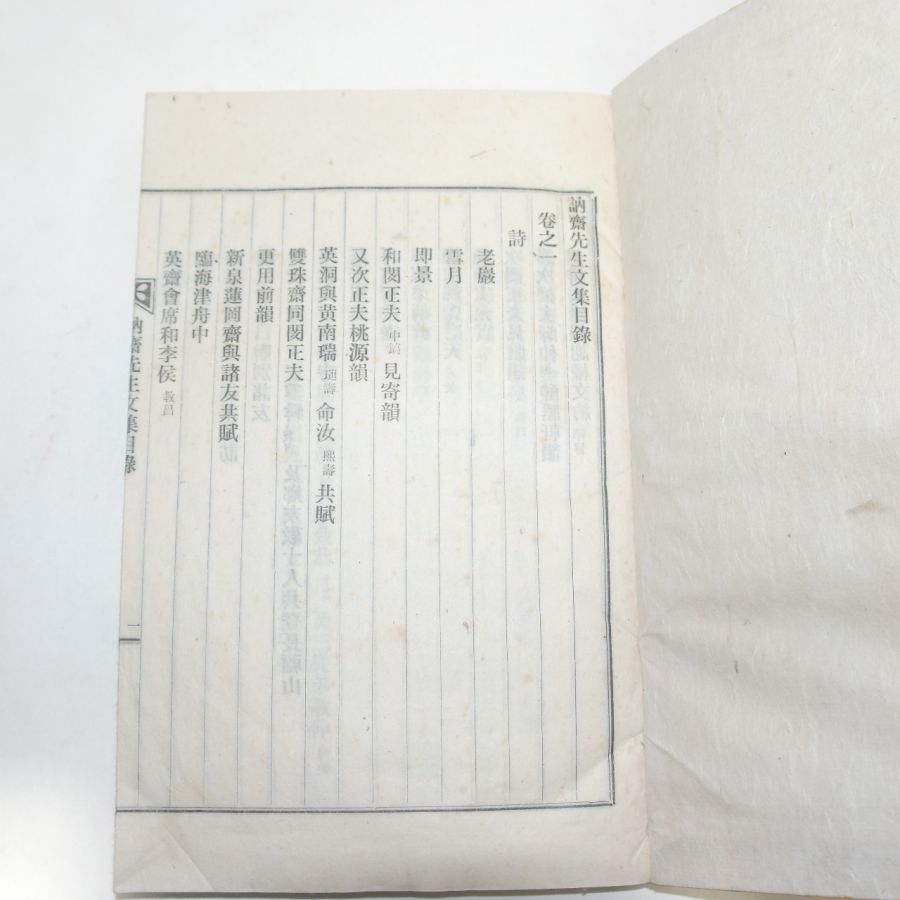 訥齋先生文集目錄
卷之一
詩
老巖
雪月
即景
和閔正夫 中鎬 見寄韻
又次正夫桃源韻
英洞與黃南瑞 廷壽 命汝 熙壽 共賦
雙珠齋同閔正夫
更用前韻
新泉蓮圃齋與諸友共賦
臨海津舟中
英齋會席和李侯 教昌
訥齋先生文集目錄
一